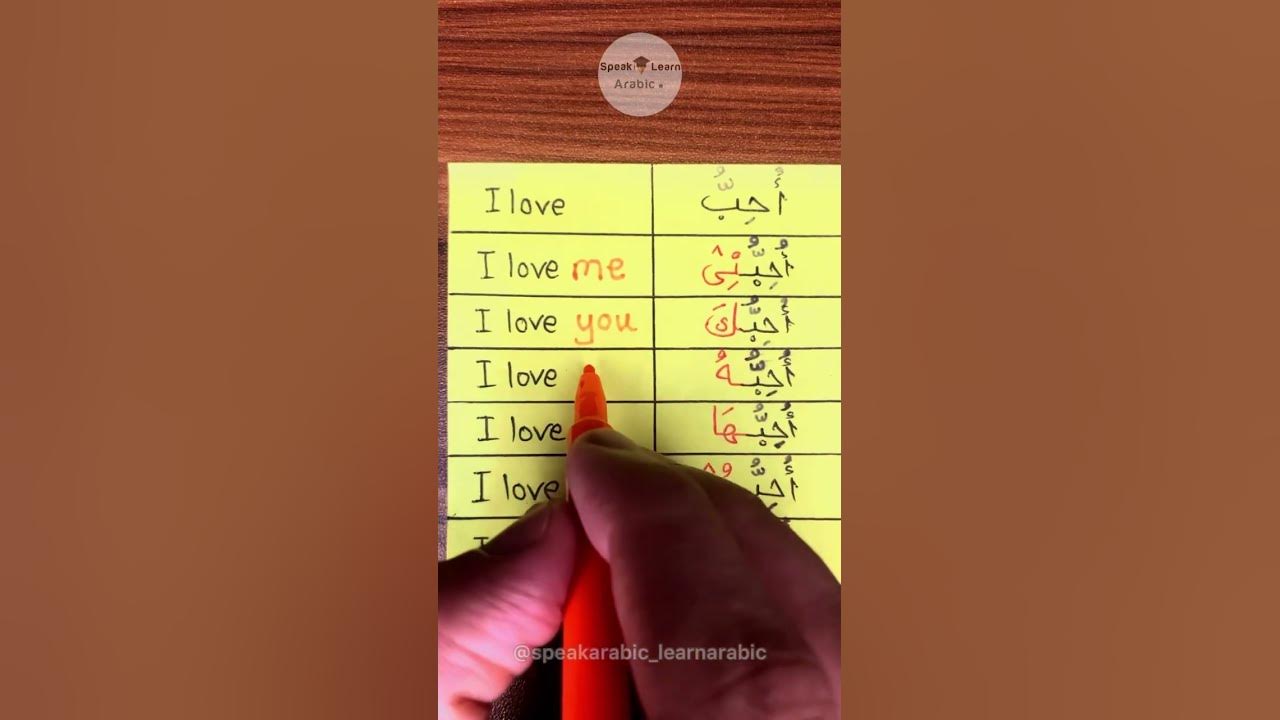 Speak Learn
Arabic
I love أُحِبُّ
I love me أُحِبُّنِيْ
I love you أُحِبُّكَ
I love أُحِبُّهُ
I love أُحِبُّهَا
I love
@speakarabic_learnarabic